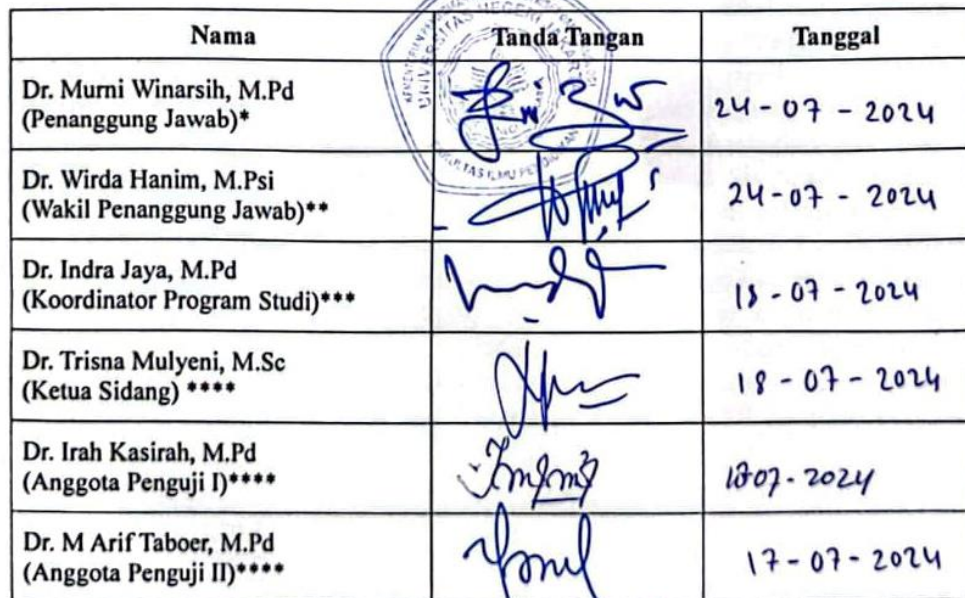 Nama Tanda Tangan Tanggal
Dr. Murni Winarsih, M.Pd
(Penanggung Jawab)* 24-07-2024
Dr. Wirda Hanim, M.Psi
(Wakil Penanggung Jawab)** 24-07-2024
Dr. Indra Jaya, M.Pd
(Koordinator Program Studi)*** 18-07-2024
Dr. Trisna Mulyeni, M.Sc
(Ketua Sidang) **** 18-07-2024
Dr. Irah Kasirah, M.Pd
(Anggota Penguji I)**** 07-2024
Dr. M Arif Taboer, M.Pd
(Anggota Penguji II)**** 17-07-2024
UNIVERSITAS NEGERI JAKARTA
FAKULTAS ILMU PENDIDIKAN